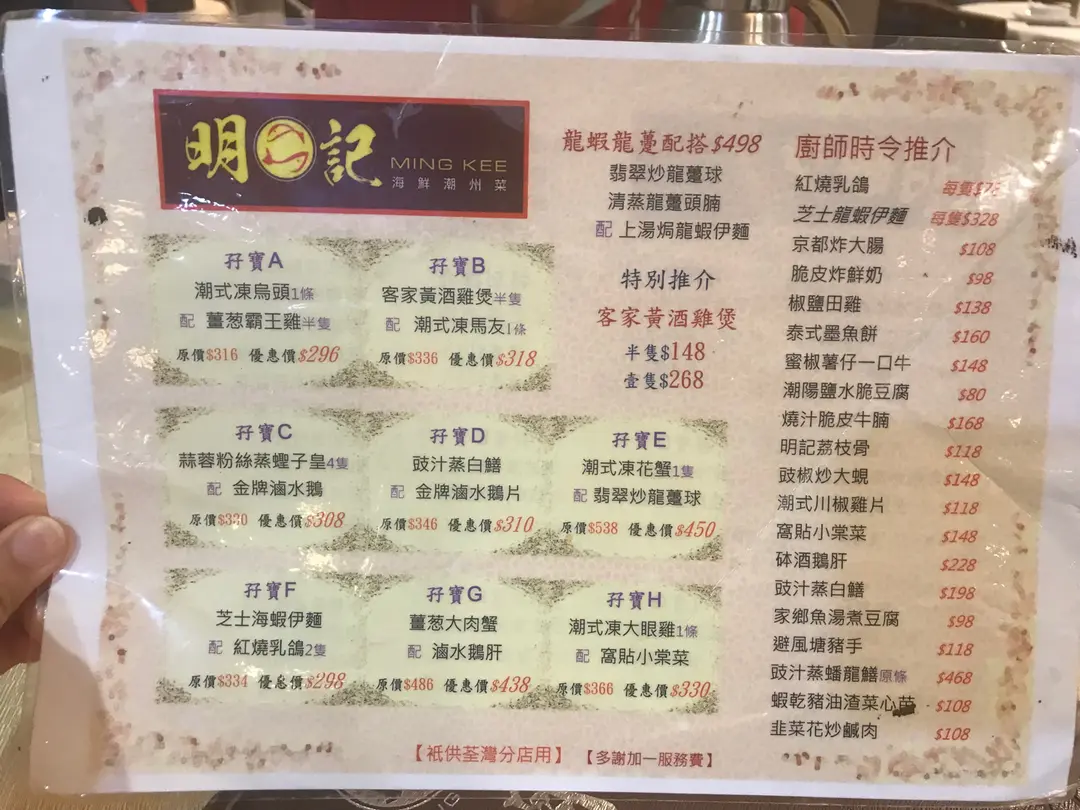 明記
MING KEE
海鮮潮州菜
孖寶A
潮式凍烏頭1條
配 薑葱霸王雞半隻
原價$316 優惠價$296
孖寶B
客家黃酒雞煲半隻
配 潮式凍馬友1條
原價$336 優惠價$318
孖寶C
蒜蓉粉絲蒸蟶子皇4隻
配 金牌滷水鵝
原價$330 優惠價$308
孖寶D
豉汁蒸白鱔
配 金牌滷水鵝片
原價$346 優惠價$310
孖寶E
潮式凍花蟹1隻
配 翡翠炒龍躉球
原價$538 優惠價$450
孖寶F
芝士海蝦伊麵
配 紅燒乳鴿2隻
原價$334 優惠價$298
孖寶G
薑葱大肉蟹
配 滷水鵝肝
原價$486 優惠價$438
孖寶H
潮式凍大眼雞1條
配 窩貼小棠菜
原價$366 優惠價$330
龍蝦龍躉配搭$498
翡翠炒龍躉球
清蒸龍躉頭腩
配 上湯焗龍蝦伊麵
特別推介
客家黃酒雞煲
半隻$148
壹隻$268
廚師時令推介
紅燒乳鴿 每隻
芝士龍蝦伊麵 每隻$328
京都炸大腸 $108
脆皮炸鮮奶 $98
椒鹽田雞 $138
泰式墨魚餅 $160
蜜椒薯仔一口牛 $148
潮陽鹽水脆豆腐 $80
燒汁脆皮牛腩 $168
明記荔枝骨 $118
豉椒炒大蜆 $148
潮式川椒雞片 $118
窩貼小棠菜 $148
砵酒鵝肝 $228
豉汁蒸白鱔 $198
家鄉魚湯煮豆腐 $98
避風塘豬手 $118
豉汁蒸蟠龍鱔原條 $468
蝦乾豬油渣菜心苗 $108
韭菜花炒鹹肉 $108
【衹供荃灣分店用】 【多謝加一服務費】